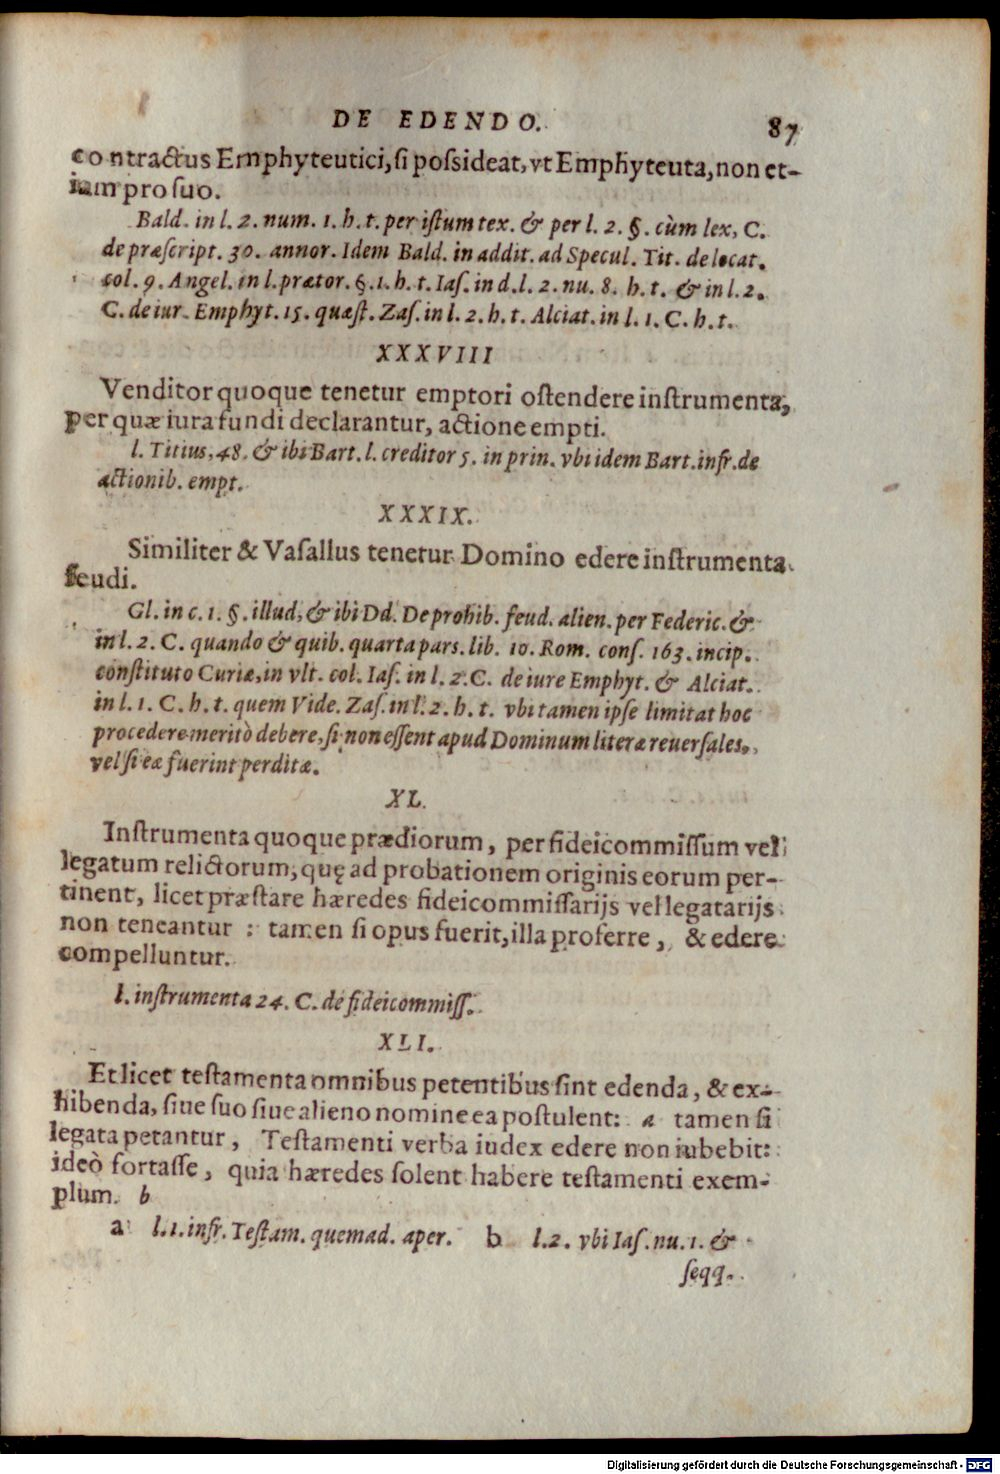 DE EDENDO. 87
contractus Emphyteutici, si possideat, vt Emphyteuta, non et-
iam pro suo.
Bald. in l. 2. num. 1. h. t. per istum tex. & per l. 2. §. cùm lex, C.
de præscript. 30. annor. Idem Bald. in addit. ad Specul. Tit. de locat.
col. 9. Angel. in l. prætor. §. 1. h. t. Ias. in d. l. 2. nu. 8. h. t. & in l. 2.
C. de iur. Emphyt. 15. quæst. Zas. in l. 2. h. t. Alciat. in l. 1. C. h. t.
XXXVIII
Venditor quoque tenetur emptori ostendere instrumenta,
per quæ iura fundi declarantur, actione empti.
l. Titius, 48. & ibi Bart. l. creditor 5. in prin. vbi idem Bart. infr. de
actionib. empt.
XXXIX.
Similiter & Vasallus tenetur Domino edere instrumenta
feudi.
Gl. in c. 1. §. illud, & ibi Dd. De prohib. feud. alien. per Federic. &
in l. 2. C. quando & quib. quarta pars. lib. 10. Rom. cons. 163. incip.
constituto Curiæ, in vlt. col. Ias. in l. 2. C. de iure Emphyt. & Alciat.
in l. 1. C. h. t. quem Vide. Zas. in l. 2. h. t. vbi tamen ipse limitat hoc
procedere meritò debere, si non essent apud Dominum literæ reuersales,
vel si eæ fuerint perditæ.
XL.
Instrumenta quoque prædiorum, per fideicommissum vel
legatum relictorum, quę ad probationem originis eorum per-
tinent, licet præstare hæredes fideicommissarijs vel legatarijs
non teneantur : tamen si opus fuerit, illa proferre, & edere
compelluntur.
l. instrumenta 24. C. de fideicommiss.
XLI.
Et licet testamenta omnibus petentibus sint edenda, & ex-
hibenda, siue suo siue alieno nomine ea postulent: a tamen si
legata petantur, Testamenti verba iudex edere non iubebit:
ideò fortasse, quia hæredes solent habere testamenti exem-
plum. b
a l. 1. infr. Testam. quemad. aper. b l. 2. vbi Ias. nu. 1. &
seqq.
Digitalisierung gefördert durch die Deutsche Forschungsgemeinschaft - DFG